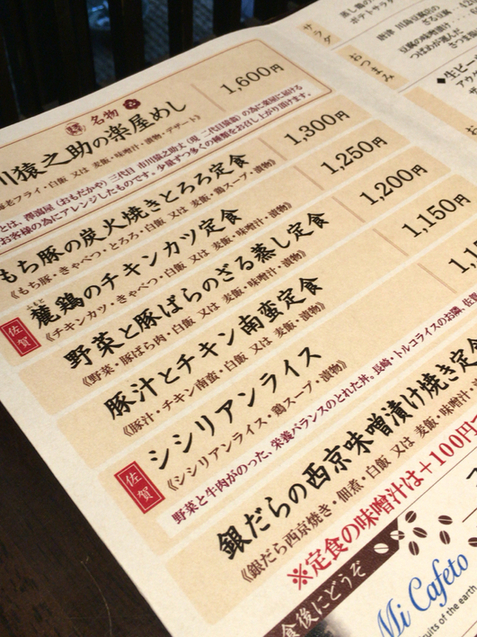 名物
川猿之助の楽屋めし
1,600円
海老フライ・白飯 又は 麦飯・味噌汁・漬物・デザート》
とは、澤瀉屋(おもだかや)三代目 市川猿之助丈(現 二代目猿翁)の為に楽屋に届ける
お客様の為にアレンジしたものです。少量ずつ多くの種類をお召し上がり頂けます。
もち豚の炭火焼きとろろ定食
1,300円
《もち豚・きゃべつ・とろろ・白飯 又は 麦飯・鶏スープ・漬物》
佐賀
麓鶏のチキンカツ定食
1,250円
《チキンカツ・きゃべつ・白飯 又は 麦飯・味噌汁・漬物》
野菜と豚ばらのざる蒸し定食
1,200円
《野菜・豚ばら肉・白飯 又は 麦飯・味噌汁・漬物》
豚汁とチキン南蛮定食
1,150円
《豚汁・チキン南蛮・白飯 又は 麦飯・漬物》
佐賀
シシリアンライス
《シシリアンライス・鶏スープ・漬物》
野菜と牛肉がのった、栄養バランスのとれた丼。長崎・トルコライスのお隣、佐賀
銀だらの西京味噌漬け焼き定食
《銀だら西京焼き・佃煮・白飯 又は 麦飯・味噌汁・
※定食の味噌汁は+100円
食後にどうぞ
Mi Cafeto
uits of the earth
サラダ
ポテトサラダ
おつまみ
唐津 川島豆腐店の
ざる豆腐
豆腐の味噌漬け
つばめが選んだ
さつま
◆生ビー